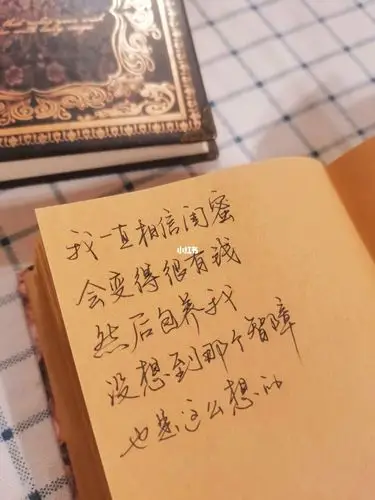 我一直相信闺蜜
小红书
会变得很有钱
然后包养我
没想到那个智障
也是这么想的